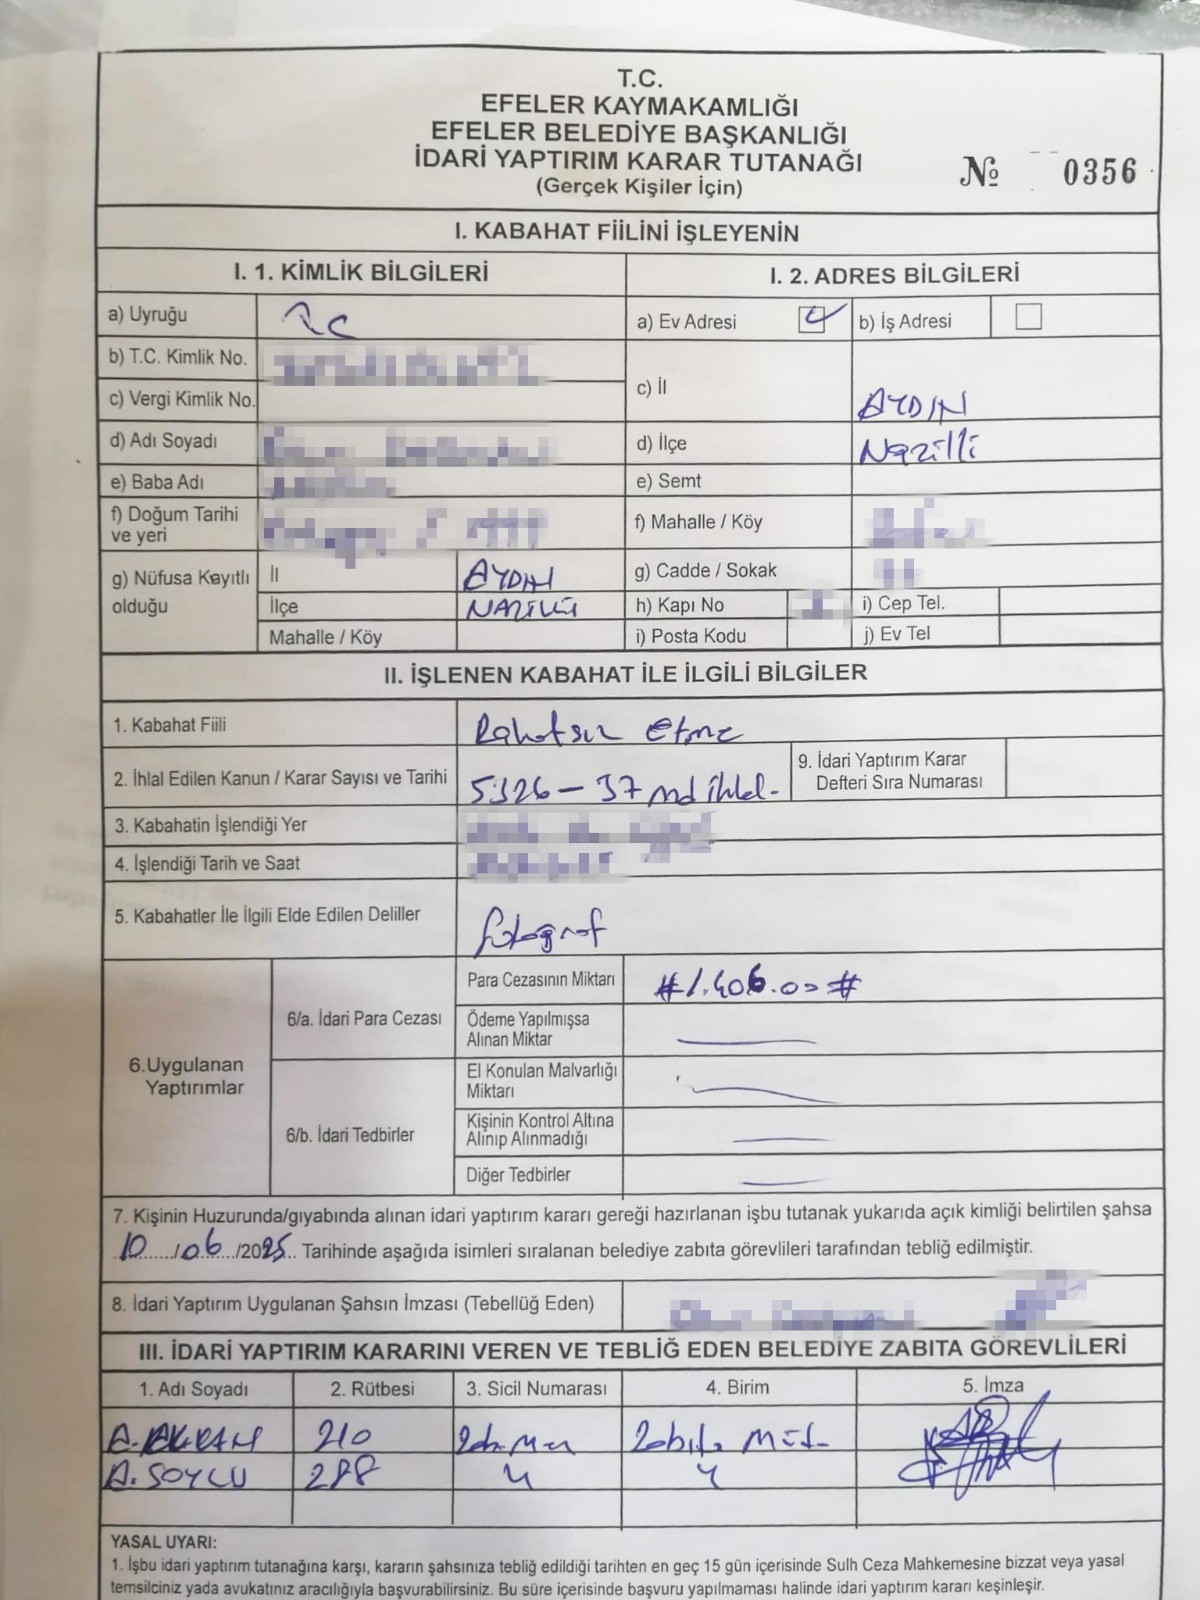 T.C.
EFELER KAYMAKAMLIĞI
EFELER BELEDİYE BAŞKANLIĞI
İDARİ YAPTIRIM KARAR TUTANAĞI
(Gerçek Kişiler İçin)
№ 0356
I. KABAHAT FİİLİNİ İŞLEYENİN
I. 1. KİMLİK BİLGİLERİ
I. 2. ADRES BİLGİLERİ
a) Uyruğu TC
a) Ev Adresi b) İş Adresi
b) T.C. Kimlik No.
c) Vergi Kimlik No.
c) İl AYDIN
d) Adı Soyadı
d) İlçe Nazilli
e) Baba Adı
e) Semt
f) Doğum Tarihi
ve yeri
f) Mahalle / Köy
g) Nüfusa Kayıtlı
olduğu
İl AYDIN
İlçe NAZİLLİ
Mahalle / Köy
g) Cadde / Sokak
h) Kapı No i) Cep Tel.
i) Posta Kodu j) Ev Tel
II. İŞLENEN KABAHAT İLE İLGİLİ BİLGİLER
1. Kabahat Fiili Rahatsız Etme
2. İhlal Edilen Kanun / Karar Sayısı ve Tarihi 5326 - 37 md ihlal.
9. İdari Yaptırım Karar
Defteri Sıra Numarası
3. Kabahatin İşlendiği Yer
4. İşlendiği Tarih ve Saat
5. Kabahatler İle İlgili Elde Edilen Deliller fotoğraf
6.Uygulanan
Yaptırımlar
6/a. İdari Para Cezası
Para Cezasının Miktarı #1.406.00#
Ödeme Yapılmışsa
Alınan Miktar
6/b. İdari Tedbirler
El Konulan Malvarlığı
Miktarı
Kişinin Kontrol Altına
Alınıp Alınmadığı
Diğer Tedbirler
7. Kişinin Huzurunda/gıyabında alınan idari yaptırım kararı gereği hazırlanan işbu tutanak yukarıda açık kimliği belirtilen şahsa
10/06/2025 Tarihinde aşağıda isimleri sıralanan belediye zabıta görevlileri tarafından tebliğ edilmiştir.
8. İdari Yaptırım Uygulanan Şahsın İmzası (Tebellüğ Eden)
III. İDARİ YAPTIRIM KARARINI VEREN VE TEBLİĞ EDEN BELEDİYE ZABITA GÖREVLİLERİ
1. Adı Soyadı 2. Rütbesi 3. Sicil Numarası 4. Birim 5. İmza
A. 210 Zabıta Müd.
A. SOYLU 288
YASAL UYARI:
1. İşbu idari yaptırım tutanağına karşı, kararın şahsınıza tebliğ edildiği tarihten en geç 15 gün içerisinde Sulh Ceza Mahkemesine bizzat veya yasal
temsilciniz yada avukatınız aracılığıyla başvurabilirsiniz. Bu süre içerisinde başvuru yapılmaması halinde idari yaptırım kararı keşinleşir.